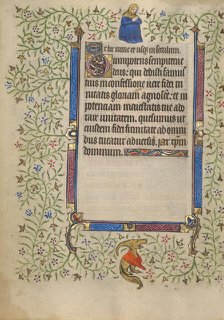 et hunc et usq; in seculum.
Omnipotens sempiterne
deus: qui dedisti famulis
tuis in confessione vere fidei
trinitatis gloriam agnoscere. et in
potentia maiestatis tue ado
rare unitatem. quesumus ut
eiusdem fidei firmitate ab omni
bus tueatur adversis. per xpm
dominum.